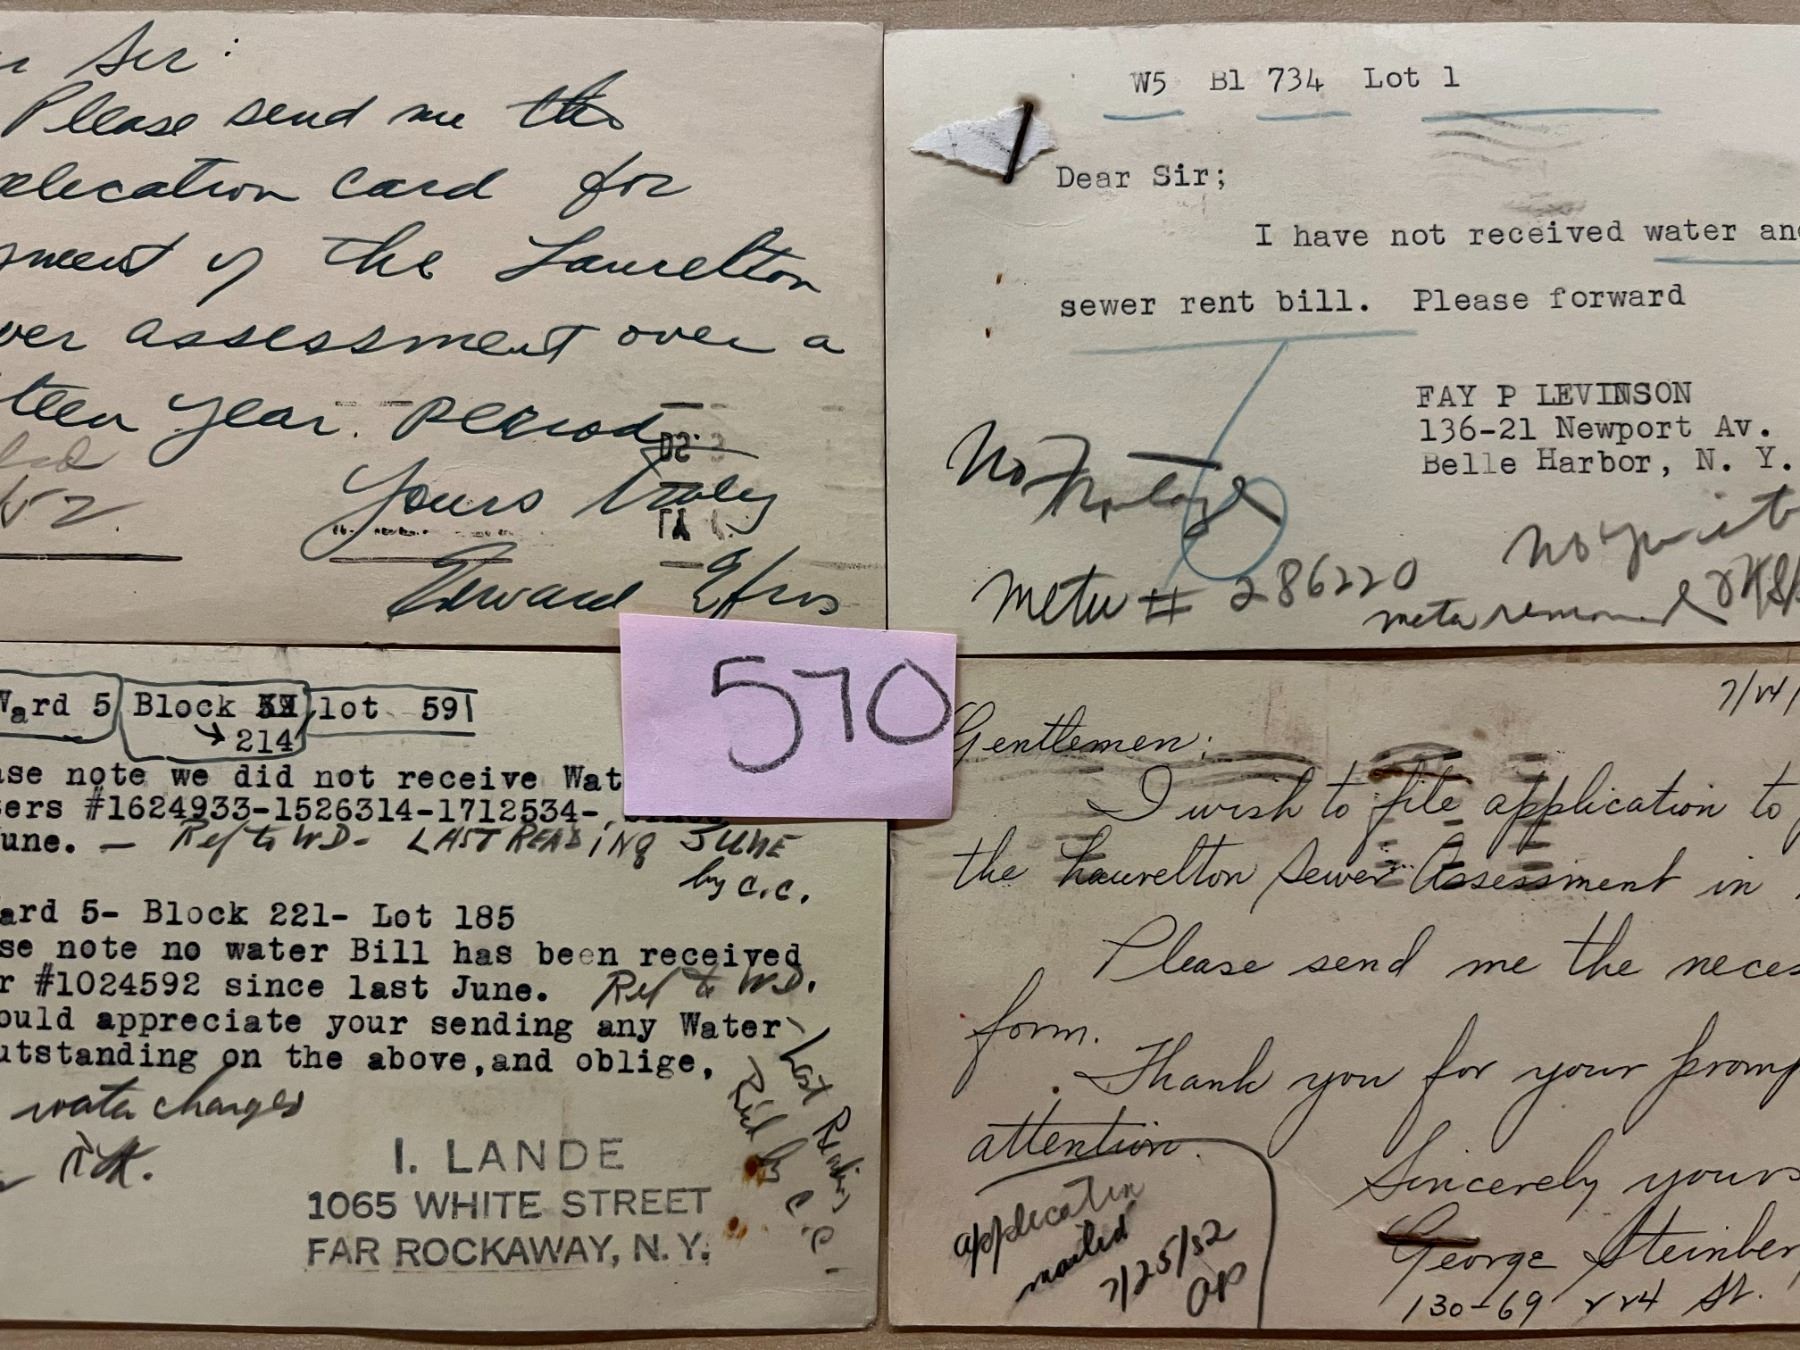 Sir:
Please send me the
plication card for
yment of the Laurelton
wer assessment over a
teen year. period.
Yours truly
Edward Efros
W5 Bl 734 Lot 1
Dear Sir;
I have not received water and
sewer rent bill. Please forward
FAY P LEVINSON
136-21 Newport Av.
Belle Harbor, N. Y.
No
Meter # 286220
No
meter
570
Ward 5 Block lot 59
214
ase note we did not receive Wat
ters #1624933-1526314-1712534-, since
June. — Ref to W.D- LAST READING JUNE
by C.C.
ard 5- Block 221- Lot 185
se note no water Bill has been received
r #1024592 since last June. Ref to W.D.
ould appreciate your sending any Water
utstanding on the above,and oblige,
water charges
Last Reading
by C.C.
I. LANDE
1065 WHITE STREET
FAR ROCKAWAY, N. Y.
7/24/
Gentlemen:
I wish to file application to
the Laurelton Sewer Assessment in
Please send me the neces
form.
Thank you for your promp
attention.
Sincerely yours
George Steinber
130-69 224 St.
application
mailed
7/25/52
ap